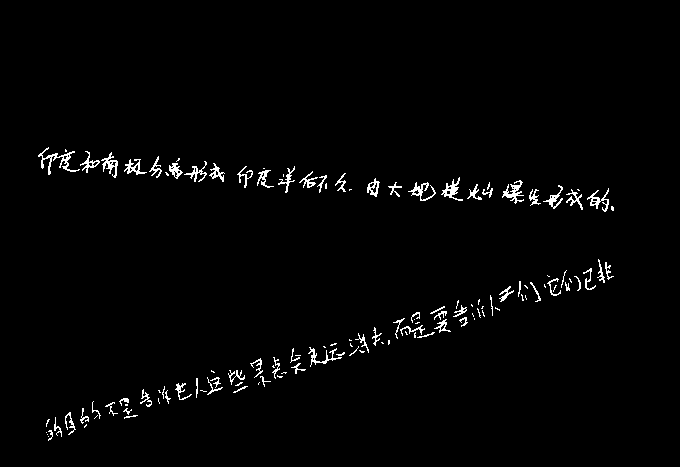 印度和南极分离形成印度洋后不久.由大规模火山爆发形成的、
的目的不是告诉世人这些景点会永远消失,而是要告诉人们,它们已非